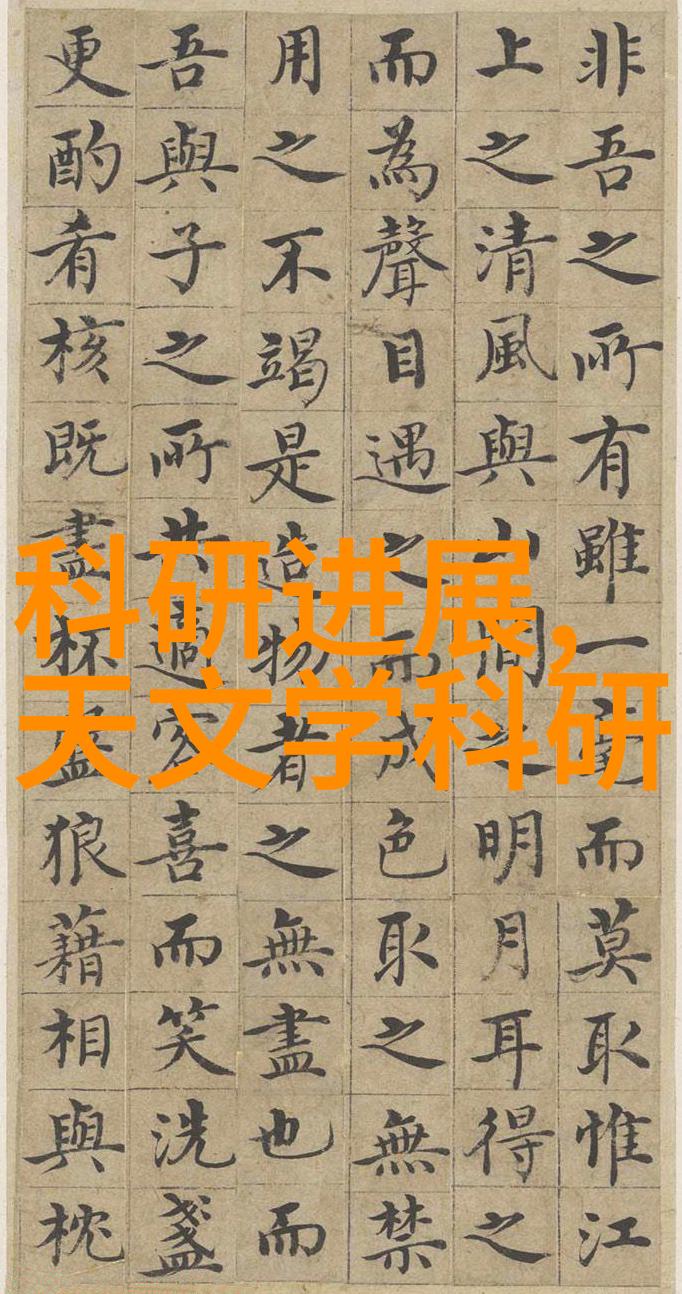 非吾之所有雖一毫而莫取惟江
上之清風與山間之明月耳得之
而為聲目遇之而成色取之無禁
用之不竭是造物者之無盡也而
吾與子之所共適客喜而笑洗盞
更酌肴核既盡杯盤狼藉相與枕
科研进展,
天文学科研